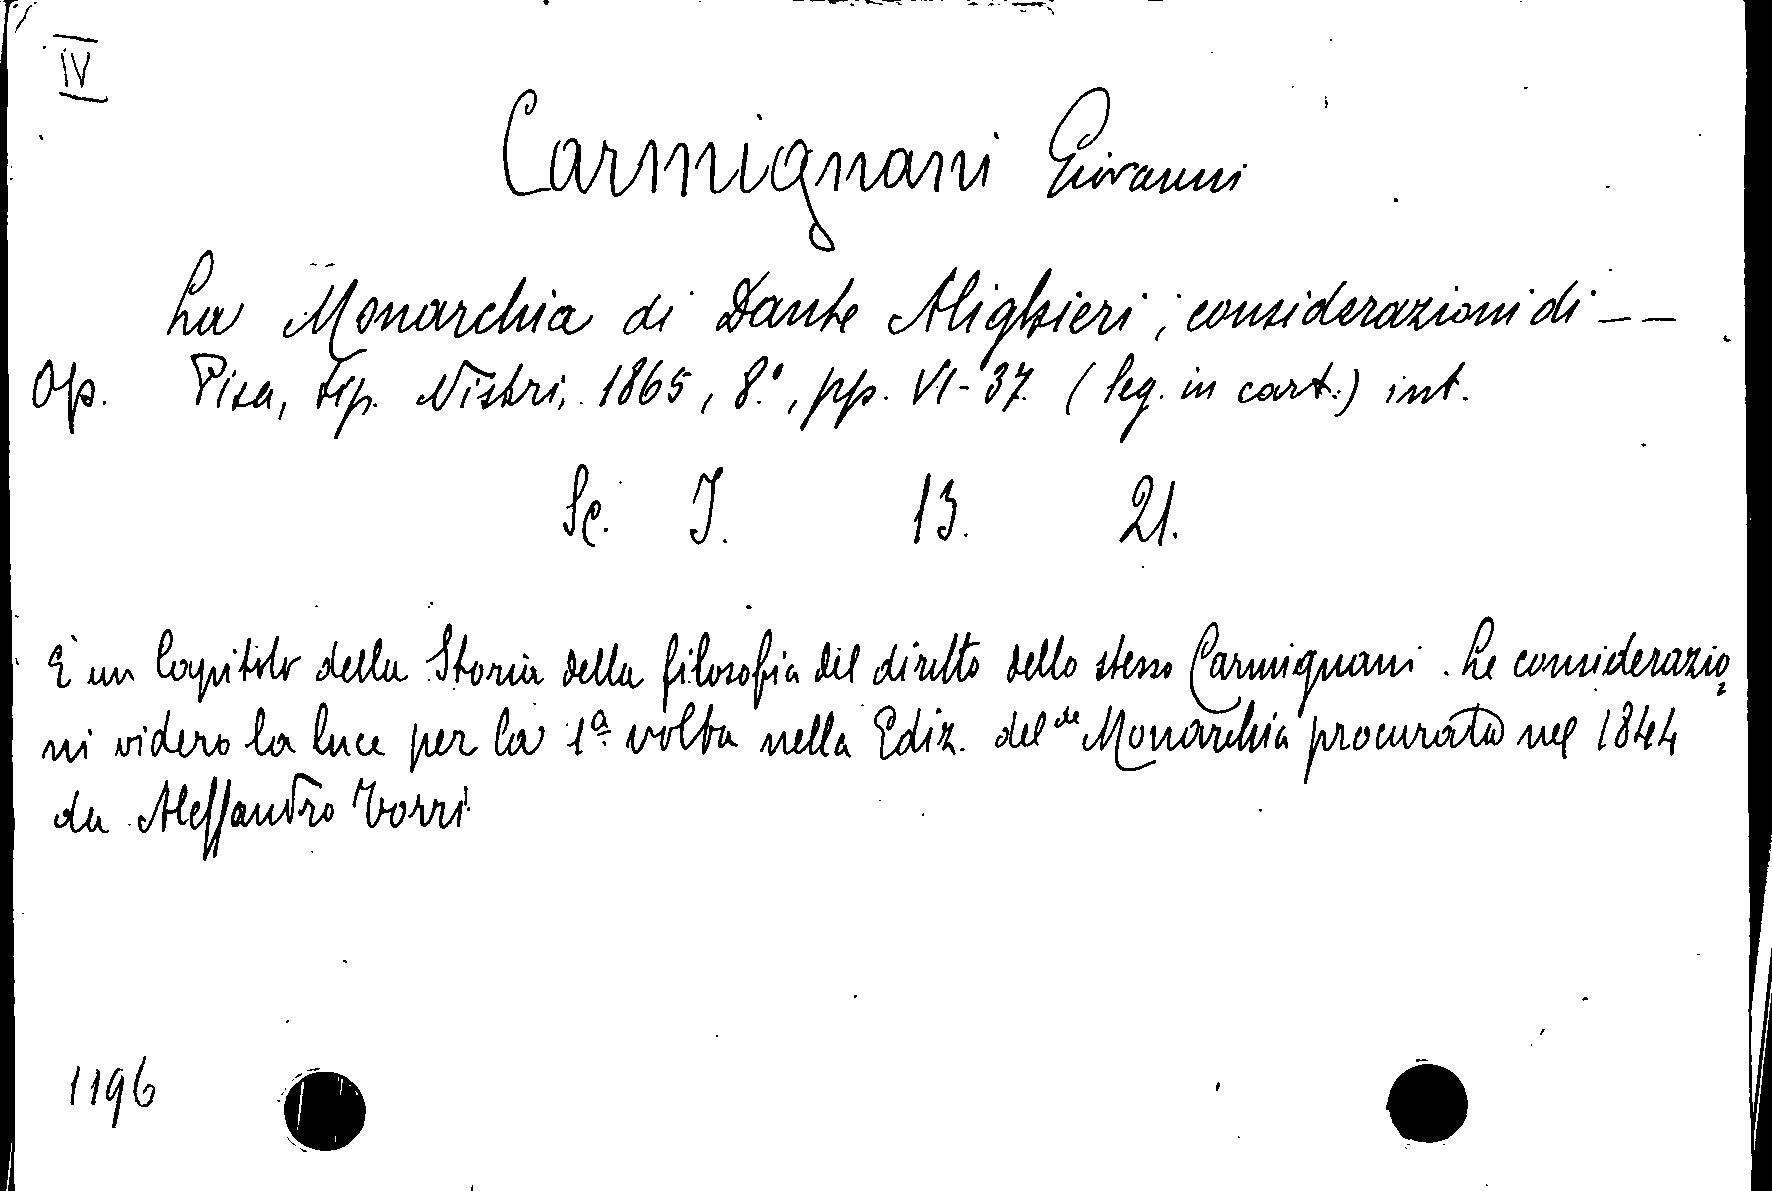 IV
Carmignani Giovanni
La Monarchia di Dante Alighieri; considerazioni di __
Op. Pisa, tip. Nistri, 1865, 8.°, pp. VI-37. (leg. in cart.) int.
Sc. I. 13. 21.
È un Capitolo della Storia della filosofia del diritto dello stesso Carmignani. Le considerazio=
ni videro la luce per la 1ª volta nella Ediz. del de Monarchia procurata nel 1844
da Alessandro Torri
1196